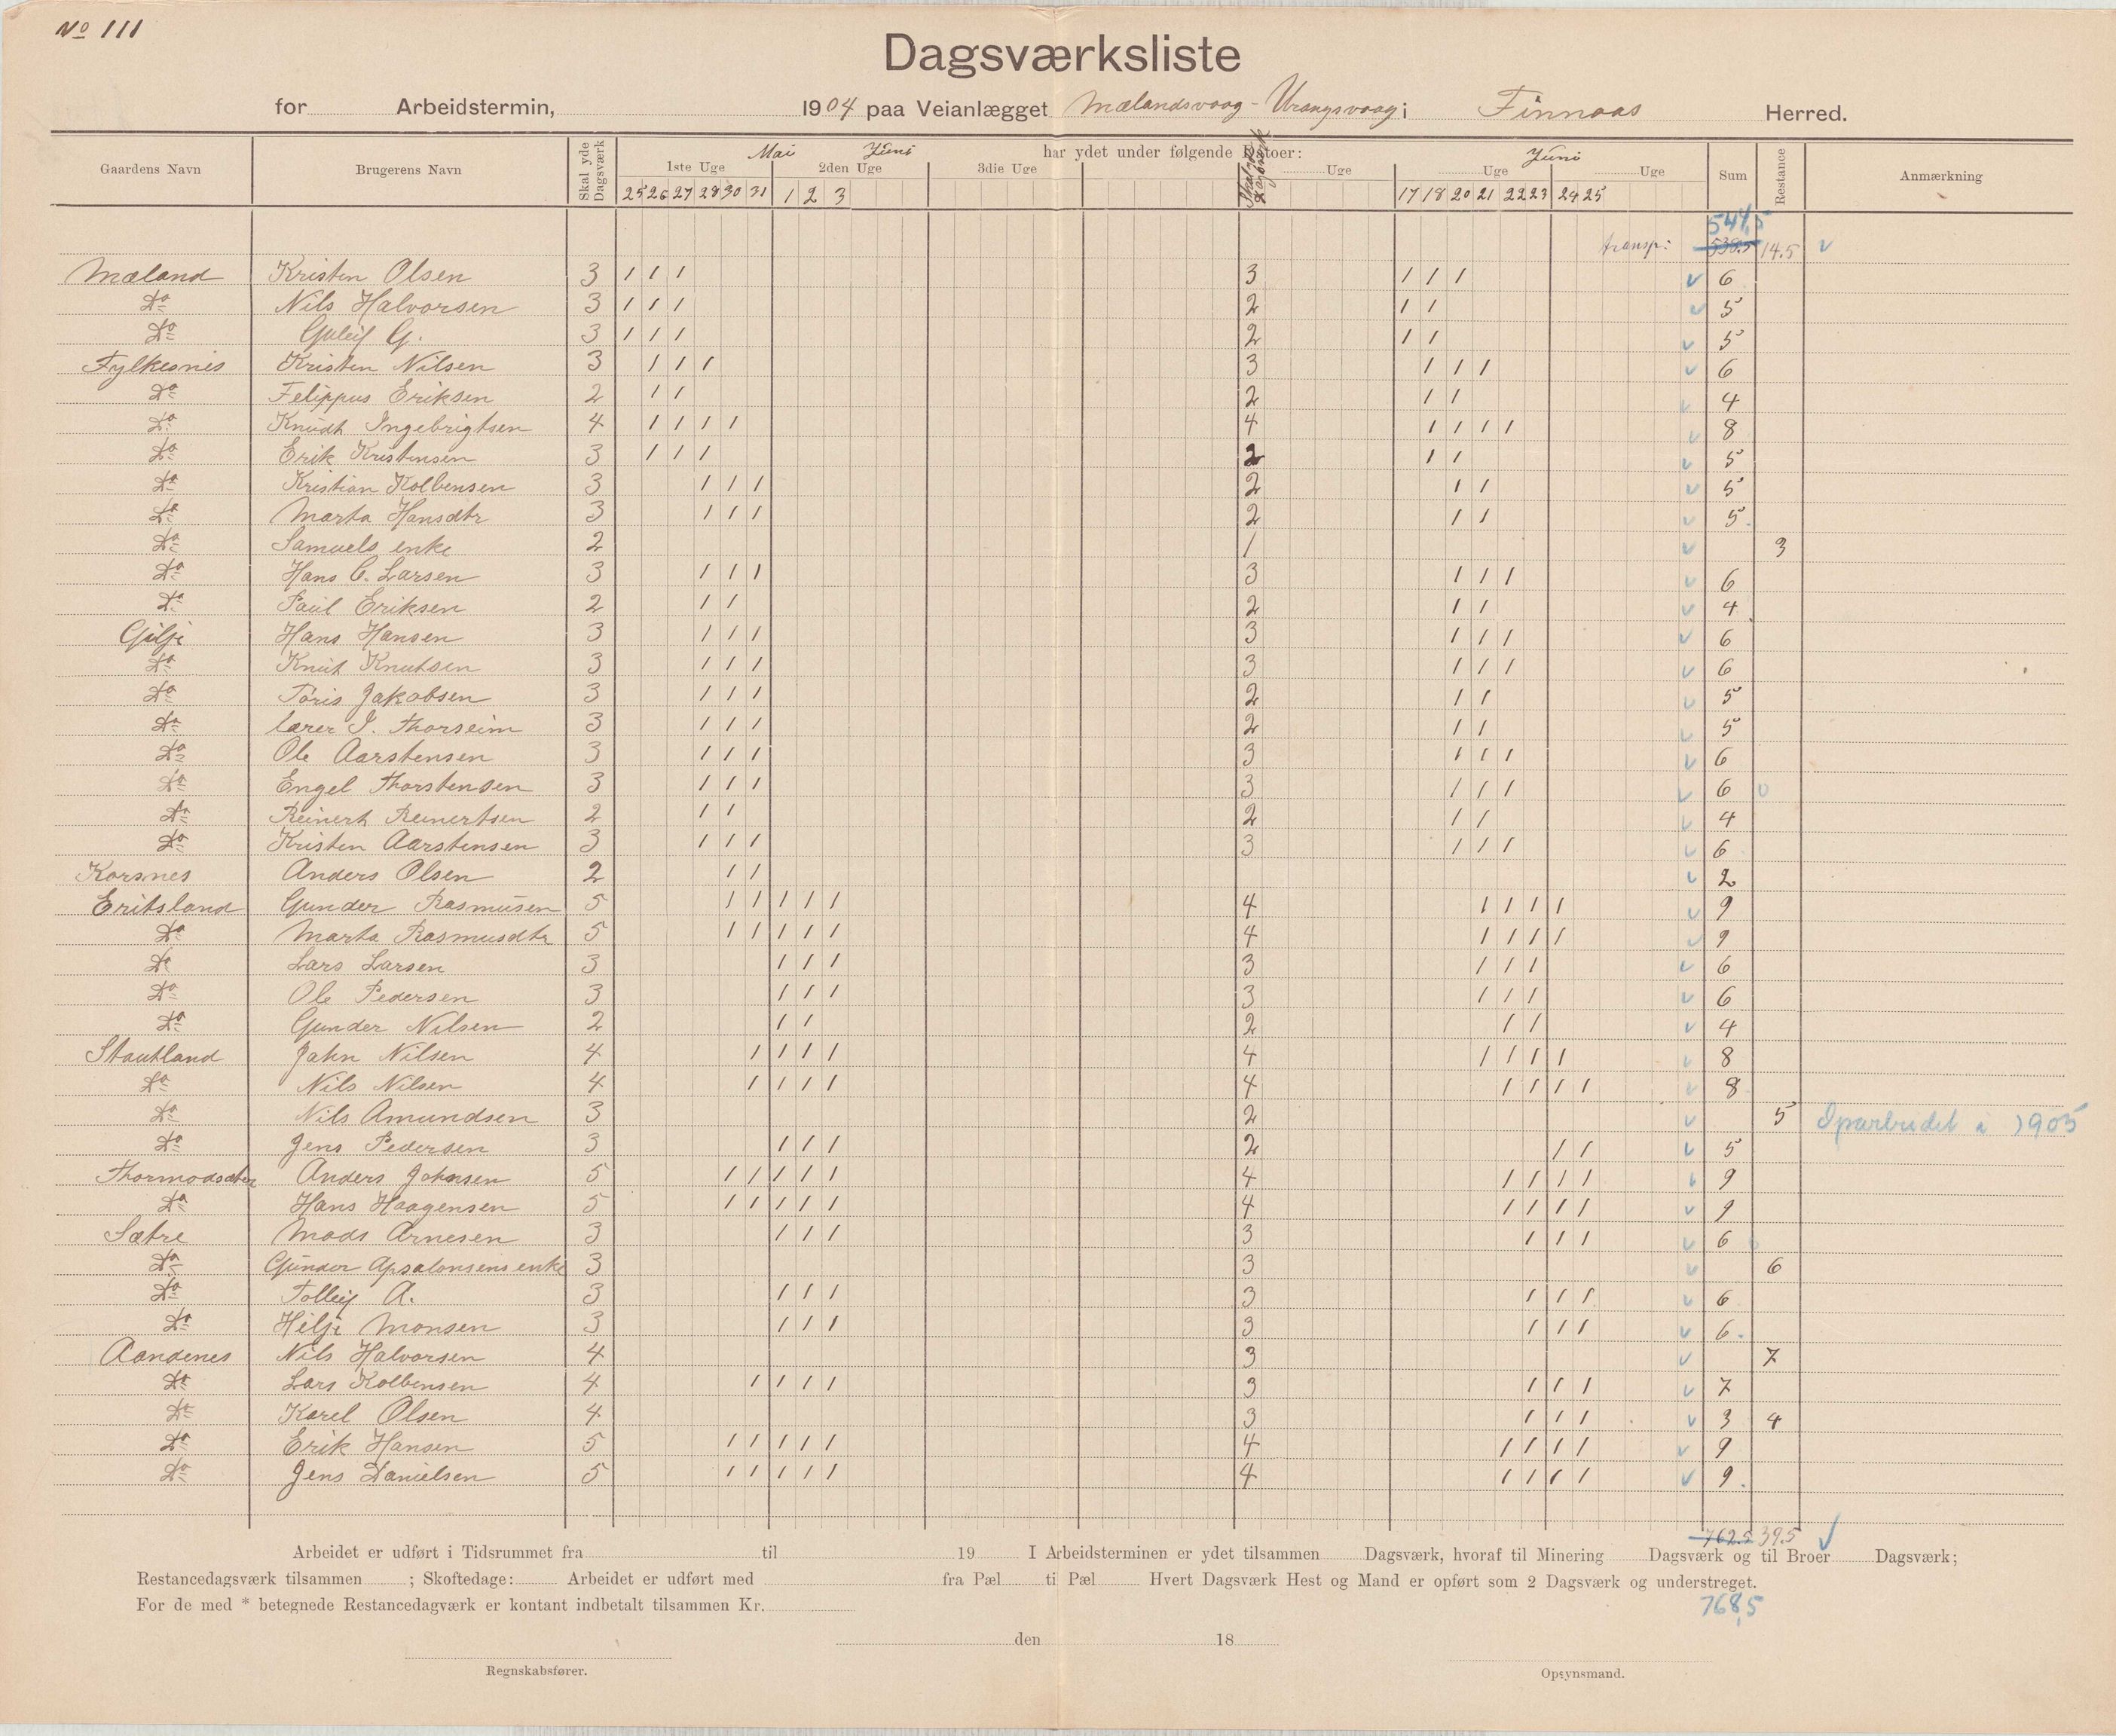 No 111
Dagsværksliste
for Arbeidstermin, 1904 paa Veianlægget Mælandsvaag - Urangsvaag i Finnaas Herred.
Gaardens Navn Brugerens Navn Skal yde Dagsværk har ydet under følgende Datoer: Sum Restance Anmærkning
Mai Juni Skal yde Dagsværk Juni
1ste Uge 2den Uge 3die Uge Uge Uge Uge
25 26 27 28 30 31 1 2 3 17 18 20 21 22 23 24 25
544,5
transp: 538.5 14.5
Mæland Kristen Olsen 3 / / / 3 / / / 6
Do Nils Halvorsen 3 / / / 2 / / 5
Do Guleif G. 3 / / / 2 / / 5
Fylkesnes Kristen Nilsen 3 / / / 3 / / / 6
Do Felippus Eriksen 2 / / 2 / / 4
Do Knudt Ingebrigtsen 4 / / / / 4 / / / / 8
Do Erik Kristensen 3 / / / 2 / / 5
Do Kristian Kolbensen 3 / / / 2 / / 5
Do Marta Hansdtr 3 / / / 2 / / 5
Do Samuels enke 2 1 3
Do Hans C. Larsen 3 / / / 3 / / / 6
Do Paul Eriksen 2 / / 2 / / 4
Gilje Hans Hansen 3 / / / 3 / / / 6
Do Knut Knutsen 3 / / / 3 / / / 6
Do Toris Jakobsen 3 / / / 2 / / 5
Do lærer I. Thorseim 3 / / / 2 / / 5
Do Ole Aarstensen 3 / / / 3 / / / 6
Do Engel Thorstensen 3 / / / 3 / / / 6
Do Reinert Reinertsen 2 / / 2 / / 4
Do Kristen Aarstensen 3 / / / 3 / / / 6
Korsnes Anders Olsen 2 / / 2
Eritsland Gunder Rasmusen 5 / / / / / 4 / / / / 9
Do Marta Rasmusdtr 5 / / / / / 4 / / / / 9
Do Lars Larsen 3 / / / 3 / / / 6
Do Ole Pedersen 3 / / / 3 / / / 6
Do Gunder Nilsen 2 / / 2 / / 4
Stautland John Nilsen 4 / / / / 4 / / / / 8
Do Nils Nilsen 4 / / / / 4 / / / / 8
Do Nils Amundsen 3 2 5 Oparbeidet i 1905
Do Jens Pedersen 3 / / / 2 / / 5
Thormodsæter Anders Johnsen 5 / / / / / 4 / / / / 9
Do Hans Haagensen 5 / / / / / 4 / / / / 9
Sætre Mads Arnesen 3 / / / 3 / / / 6
Do Gunder Apsalonsens enke 3 3 6
Do Tolleif A. 3 / / / 3 / / / 6
Do Hilje Monsen 3 / / / 3 / / / 6
Aandenes Nils Halvorsen 4 3 7
Do Lars Kolbensen 4 / / / / 3 / / / 7
Do Karel Olsen 4 3 / / / 3 4
Do Erik Hansen 5 / / / / / 4 / / / / 9
Do Jens Danielsen 5 / / / / / 4 / / / / 9
762.5 39.5
Arbeidet er udført i Tidsrummet fra til 19 I Arbeidsterminen er ydet tilsammen Dagsværk, hvoraf til Minering Dagsværk og til Broer Dagsværk;
Restancedagsværk tilsammen ; Skoftedage: Arbeidet er udført med fra Pæl ti Pæl Hvert Dagsværk Hest og Mand er opført som 2 Dagsværk og understreget.
For de med * betegnede Restancedagværk er kontant indbetalt tilsammen Kr.
768,5
den 18
Regnskabsfører. Opsynsmand.